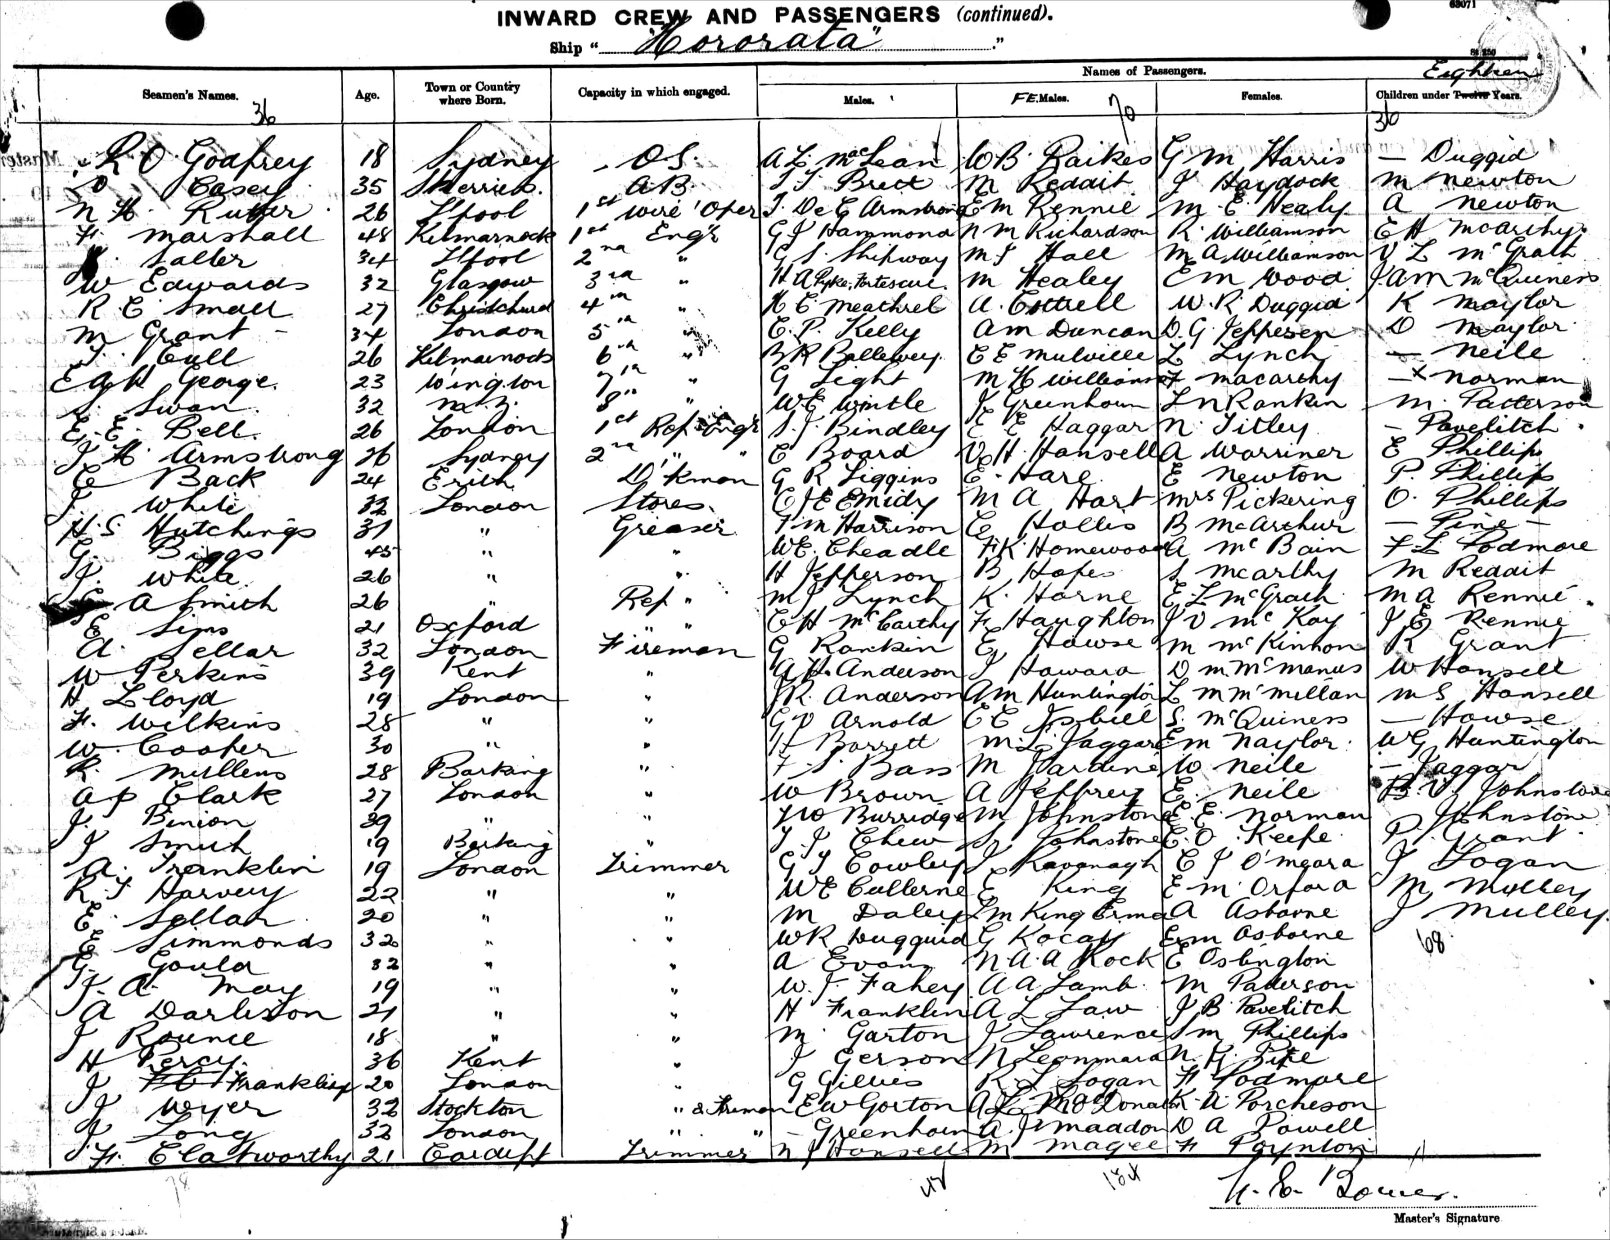 INWARD CREW AND PASSENGERS (continued).
Ship "Hororata"
Seamen's Names. Age. Town or Country where Born. Capacity in which engaged. Names of Passengers.
Males. FEMales. Females. Eighteen Children under Twelve Years.
36 70 36
R O Godfrey 18 Sydney O.S. A L McLean W B Raikes G M Harris — Duggid
Casey 35 Skerries A B Brett M Reddit J Haydock M Newton
N H Rutter 26 L'pool 1st Wire Oper J. De C Armstrong E M Rennie M E Healy A Newton
F. Marshall 48 Kilmarnock 1st Eng'r G J Hammond N M Richardson K Williamson E H McArthy
Salter 34 L'pool 2nd " G S Shipway M J Hall M A Williamson V L McGrath
W Edwards 32 Glasgow 3rd " H A Pyke. Fortescue M Healey E M Wood J.A M McQuiness
R E Small 27 Christchurch 4th " H C Meathrel A. Cottrell W. R Duggid K Naylor
M Grant 34 London 5th " E. P. Kelly A M Duncan D. G Jeppesen D Naylor
J. Cull 26 Kilmarnock 6th " B R Bellewey E E Mulville L Lynch — Neile
E G K George 23 W'ington 7th " G Light M H Williams F Macarthy —x Norman
Swan 32 N.Z. 8th " W E Wintle J Greenhorn L N Rankin M. Patterson
E. E. Bell 26 London 1st Ref Eng'r S. J. Bindley E E Haggar N. Titley — Pavelitch
J H Armstrong 26 Sydney 2nd " " E Board V. H. Hansell A Warriner E Phillips
E Back 24 Erith D'kman G R Liggins E. Hare E Newton P. Phillips
J. White 32 London Stores E J E Emidy M A Hart Mrs Pickering O. Phillips
H. S Hutchings 31 " Greaser T M Harrison E Hollis B McArthur — Pine —
G. Biggs 45 " " W E. Cheadle F K Homewood A McBain F L Podmore
J. White 26 " " H Jefferson B Hopes S McArthy M Reddit
A Smith 26 " Ref " M J Lynch K. Horne E L McGrath M A Rennie
E Sims 21 Oxford " " C H McCarthy F. Haughton J V McKay J E Rennie
A. Sellar 32 London Fireman G Rankin E Howse M McKinnon R Grant
W Perkins 39 Kent " A H. Anderson J Howard D M McManus W Hansell
H Lloyd 19 London " J. R. Anderson A M Huntington L M McMillan M S Hansell
F. Wilkins 28 " " G V Arnold E E Isbill S. McQuiness — Howse
W. Cooper 30 " " H Barrett M. L Jaggar E M Naylor W G Huntington
R. Mullens 28 Barking " F. S. Bass M Jardine W Neile — Jaggar
A P Clark 27 London " W Brown A Jeffrey E. Neile B V Johnstone
J. Binion 39 " " Burridge M Johnstone E. E. Norman Johnstone
J Smith 19 Barking " T J Chew S Johnstone E. O. Keefe P. Grant
A. Franklin 19 London Trimmer G T Cowley J Kavanagh E J O'Meara J Logan
R. J Harvey 22 " " W E Cullerne E King E M Orford M Mulley
E. Sellar 20 " " M Daley L M King Erma A Osborne J Mulley
E Simmonds 32 " " W R Dugguid G Kocay E M Osborne 68
G. Gould 32 " " A Evans N A A Kock E Oslington
F. A. May 19 " " W. J Fahey A A Lamb M Paterson
A Darliston 21 " " H Franklin A L Law J B Pavelitch
J Rounce 18 " " M Garton J Lawrence S M Phillips
H Percy 36 Kent " J Gerson N Leonnard N. G. Pike
J Franklin 20 London " G Gillies R L Logan F Podmore
J Wyer 32 Stockton " & Fireman E W Gorton A L McDonald K A Porcheson
J Long 32 London " " — Greenhorn A. J Maddon D A Powell
F. Clatworthy 21 Cardiff Trimmer N J Hansell M Magee F Poynton
78 48 184
Master's Signature